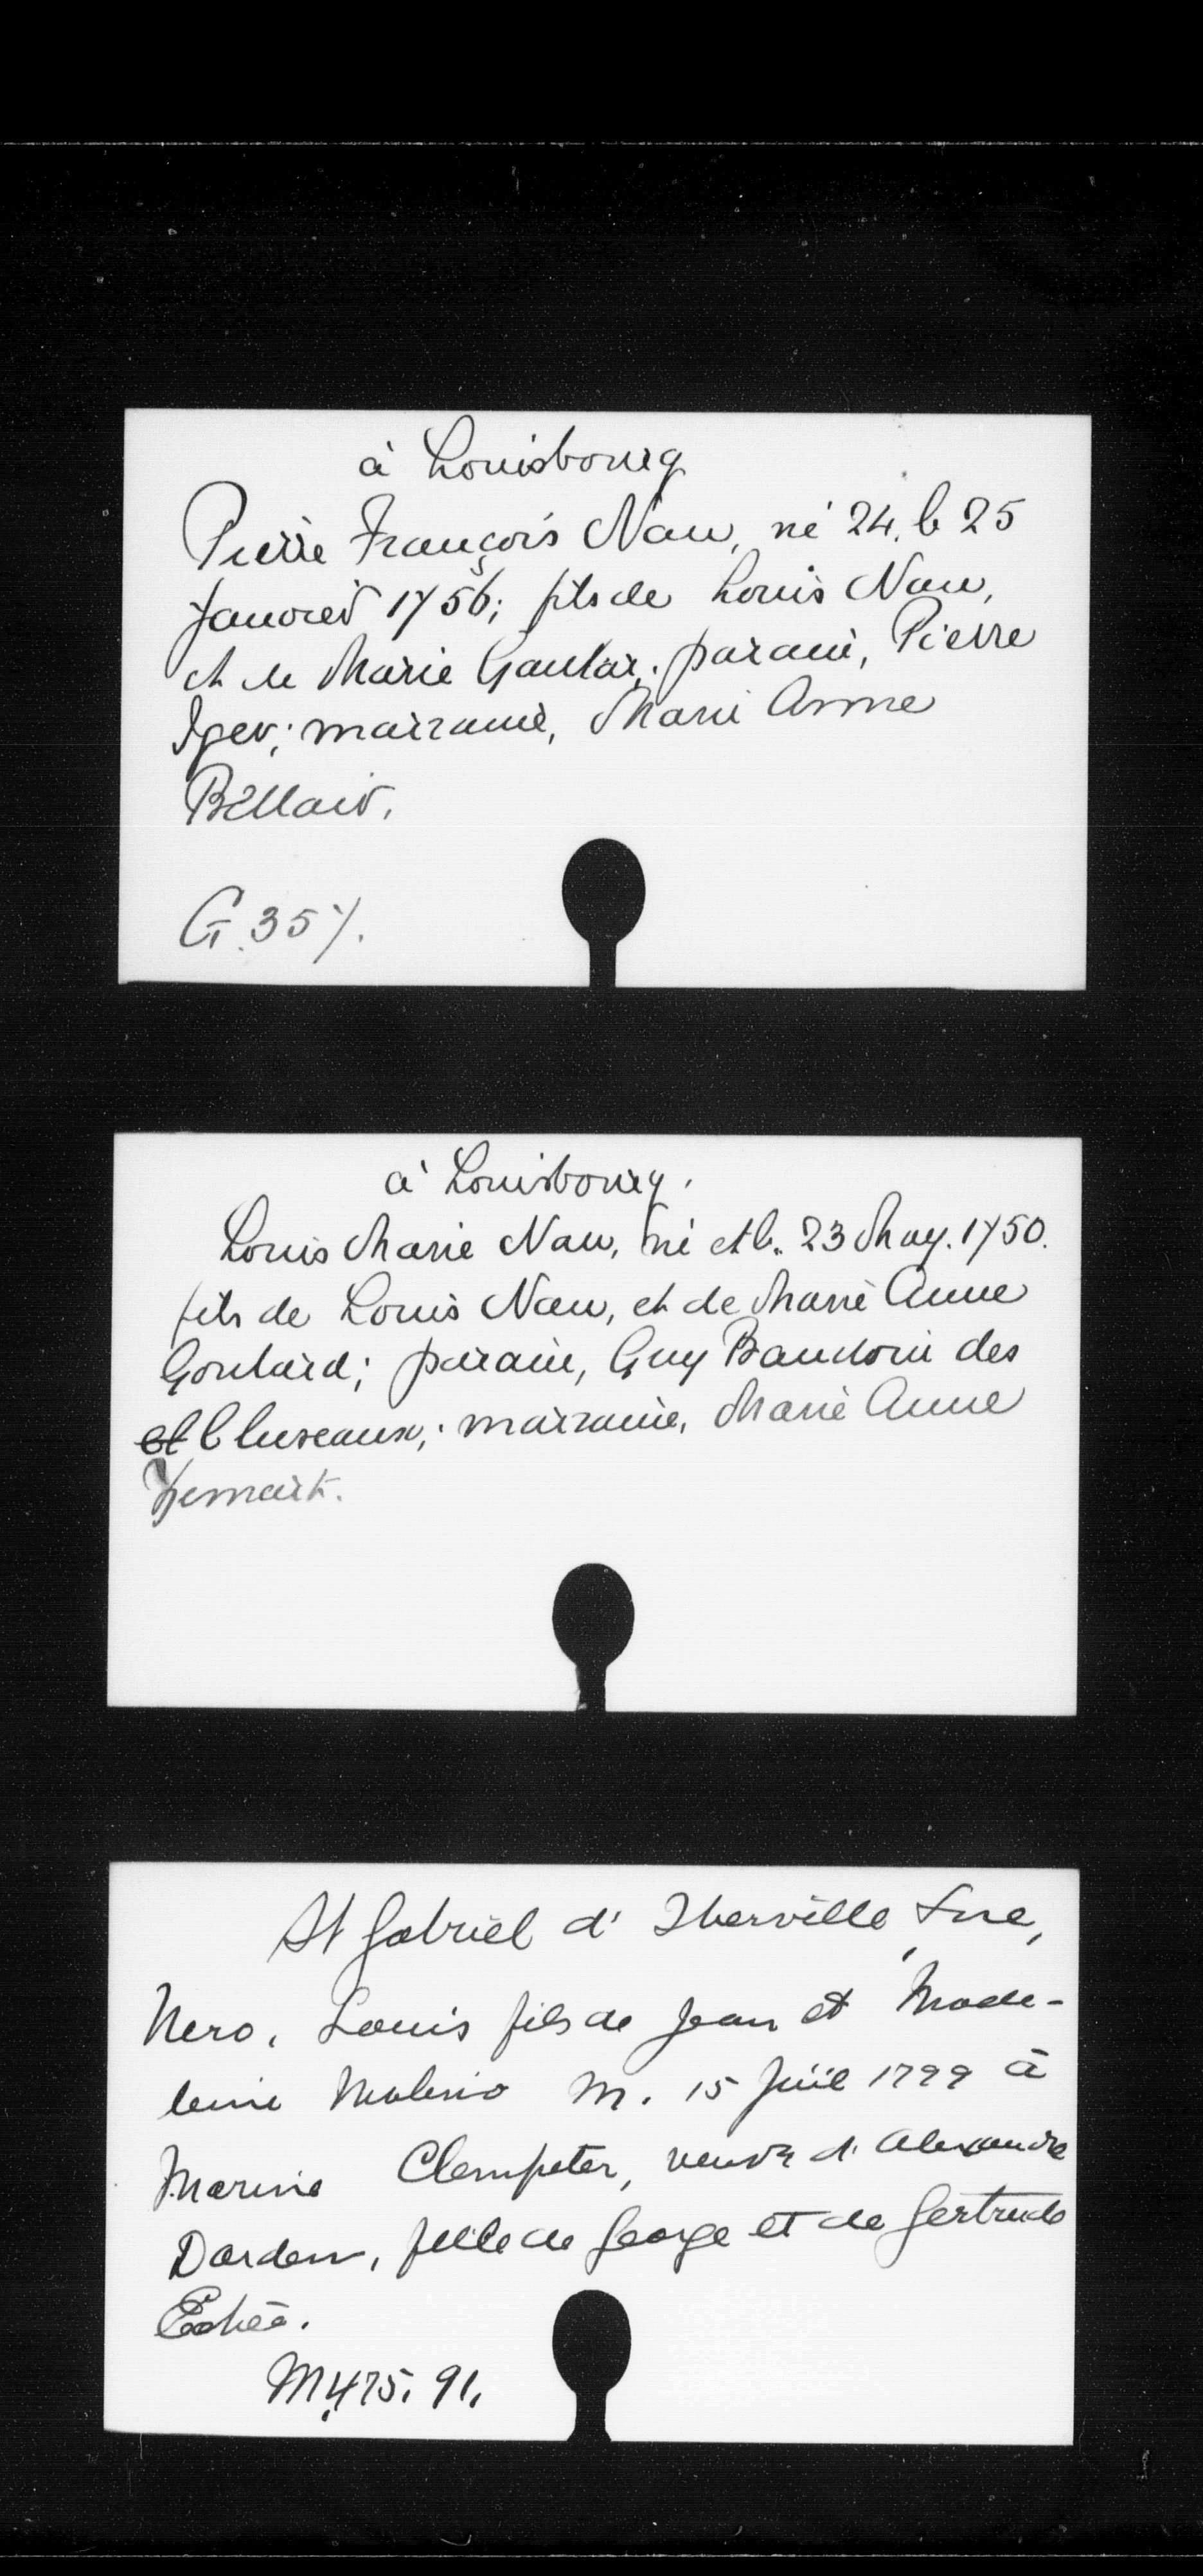 à Louisbourg
Pierre François Nau, né 24, b 25
Janvier 1756; fils de Louis Nau,
et de Marie Gautar; parain, Pierre
Iger; marraine, Marie Anne
Bellair.
G. 357.
à Louisbourg.
Louis Marie Nau, né et b. 23 May. 1750.
fils de Louis Nau, et de Marie Anne
Goutard; parain, Guy Baudouin des
et Cluseaux; marraine, Marie Anne
St Gabriel d'Iberville,
Nero, Louis fils de Jean et Made-
leine Molerio M. 15 Juil 1799 à
Marine Clempeter, veuve d'Alexandre
Darden, fille de George et de Gertrude
M. 475. 91.